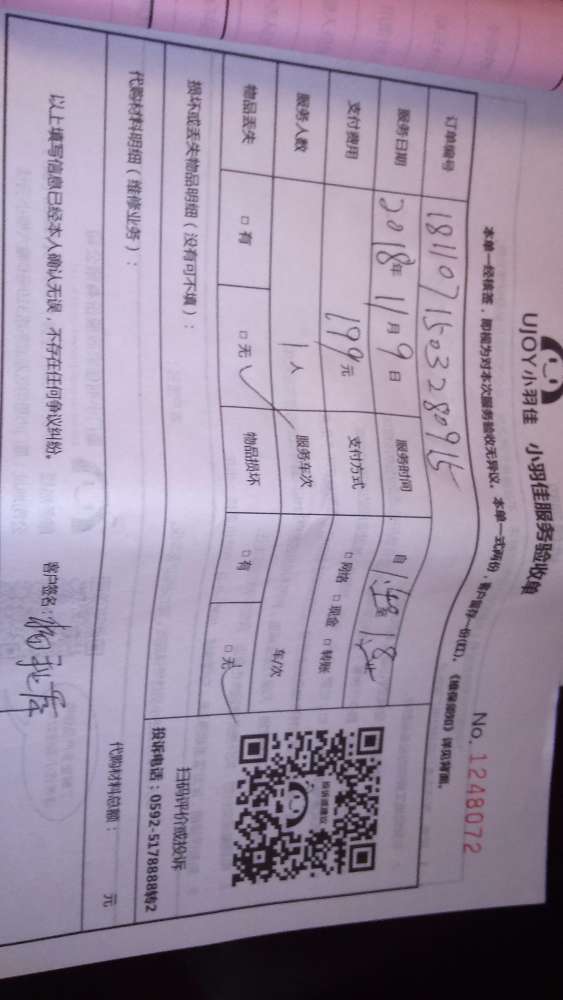 UJOY小羽佳 小羽佳服务验收单
No. 1248072
本单一经核签，即视为对本次服务验收无异议。本单一式两份，客户留存一份(红)。《维保须知》详见背面。
订单编号 1811071503280915
服务日期 2018年11月9日 服务时间 自 至
支付费用 199元 支付方式 □网络 □现金 □转账
服务人数 1人 服务车次 车/次
物品丢失 □有 □无 物品损坏 □有 □无
损坏或丢失物品明细（没有可不填）：
投诉或建议
扫码评价或投诉
投诉电话：0592-5178888转2
代购材料明细（维修业务）：
代购材料总额： 元
以上填写信息已经本人确认无误，不存在任何争议纠纷。
客户签名：